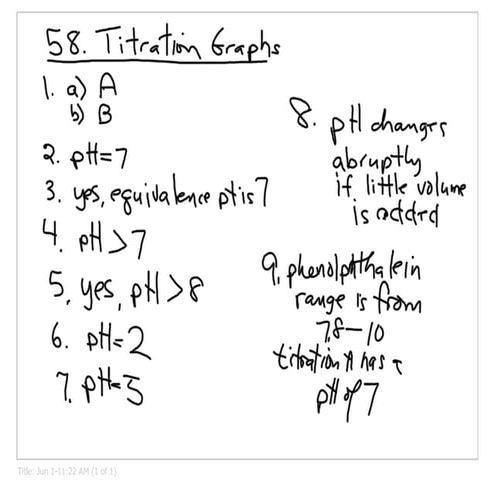 58. Titration Graphs
1. a) A
b) B
2. pH=7
3. yes, equivalence pt is 7
4. pH>7
5, yes, pH>8
6. pH=2
7. pH=3
8. pH changes
abruptly
if little volume
is added
9, phenolphthalein
range is from
7.8-10
titration A has
pH of 7
Title: Jun 1-11:22 AM (1 of 1)